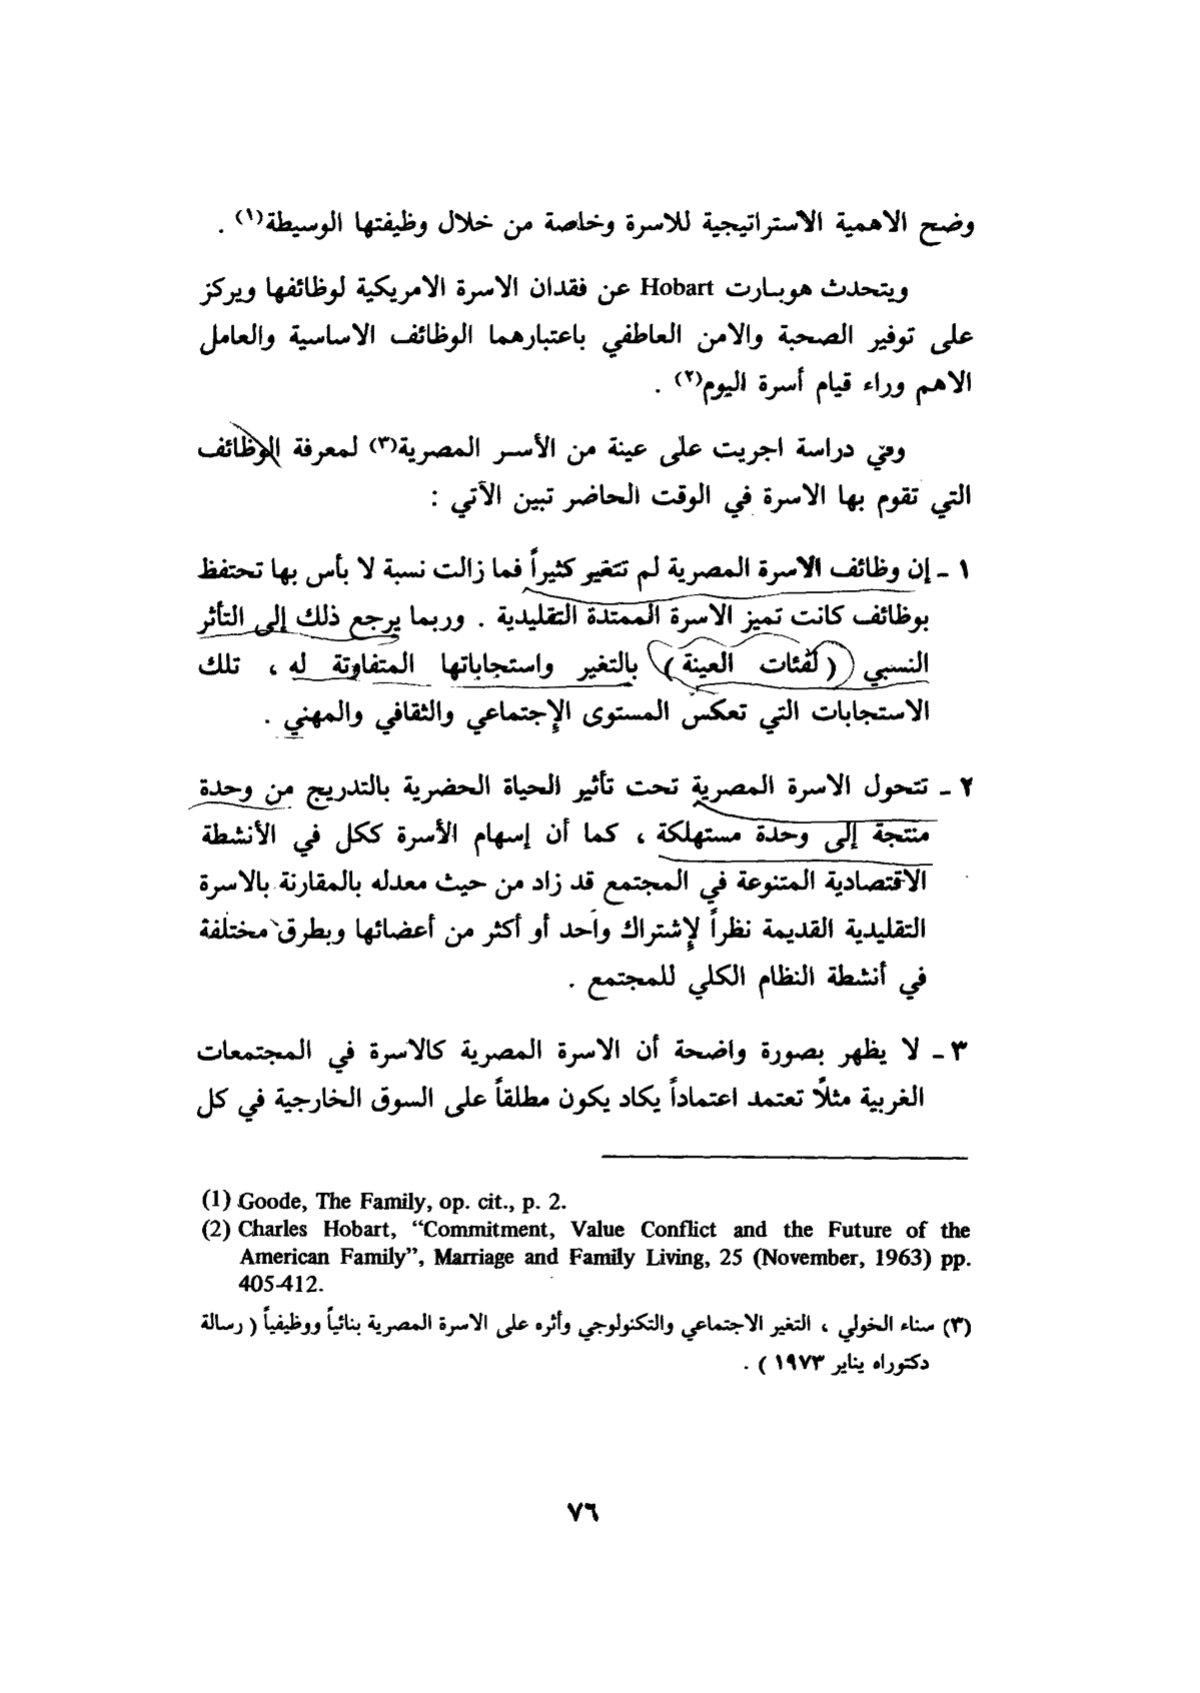 وضح الاهمية الاستراتيجية للاسرة وخاصة من خلال وظيفتها الوسيطة(١) .
ويتحدث هوبارت Hobart عن فقدان الاسرة الامريكية لوظائفها ويركز
على توفير الصحبة والامن العاطفي باعتبارهما الوظائف الاساسية والعامل
الاهم وراء قيام أسرة اليوم(٢) .
وفي دراسة اجريت على عينة من الأسر المصرية(٣) لمعرفة الوظائف
التي تقوم بها الاسرة في الوقت الحاضر تبين الآتي :
١ - إن وظائف الاسرة المصرية لم تتغير كثيراً فما زالت نسبة لا بأس بها تحتفظ
بوظائف كانت تميز الاسرة الممتدة التقليدية . وربما يرجع ذلك إلى التأثر
النسبي ( لفئات العينة ) بالتغير واستجاباتها المتفاوتة له ، تلك
الاستجابات التي تعكس المستوى الإجتماعي والثقافي والمهني .
٢ - تتحول الاسرة المصرية تحت تأثير الحياة الحضرية بالتدريج من وحدة
منتجة إلى وحدة مستهلكة ، كما أن إسهام الأسرة ككل في الأنشطة
الاقتصادية المتنوعة في المجتمع قد زاد من حيث معدله بالمقارنة بالاسرة
التقليدية القديمة نظراً لإشتراك واحد أو أكثر من أعضائها وبطرق مختلفة
في أنشطة النظام الكلي للمجتمع .
٣ - لا يظهر بصورة واضحة أن الاسرة المصرية كالاسرة في المجتمعات
الغربية مثلاً تعتمد اعتماداً يكاد يكون مطلقاً على السوق الخارجية في كل
(1) Goode, The Family, op. cit., p. 2.
(2) Charles Hobart, “Commitment, Value Conflict and the Future of the
American Family”, Marriage and Family Living, 25 (November, 1963) pp.
405-412.
(٣) سناء الخولي ، التغير الاجتماعي والتكنولوجي وأثره على الاسرة المصرية بنائياً ووظيفياً ( رسالة
دكتوراه يناير ١٩٧٣ ) .
٧٦